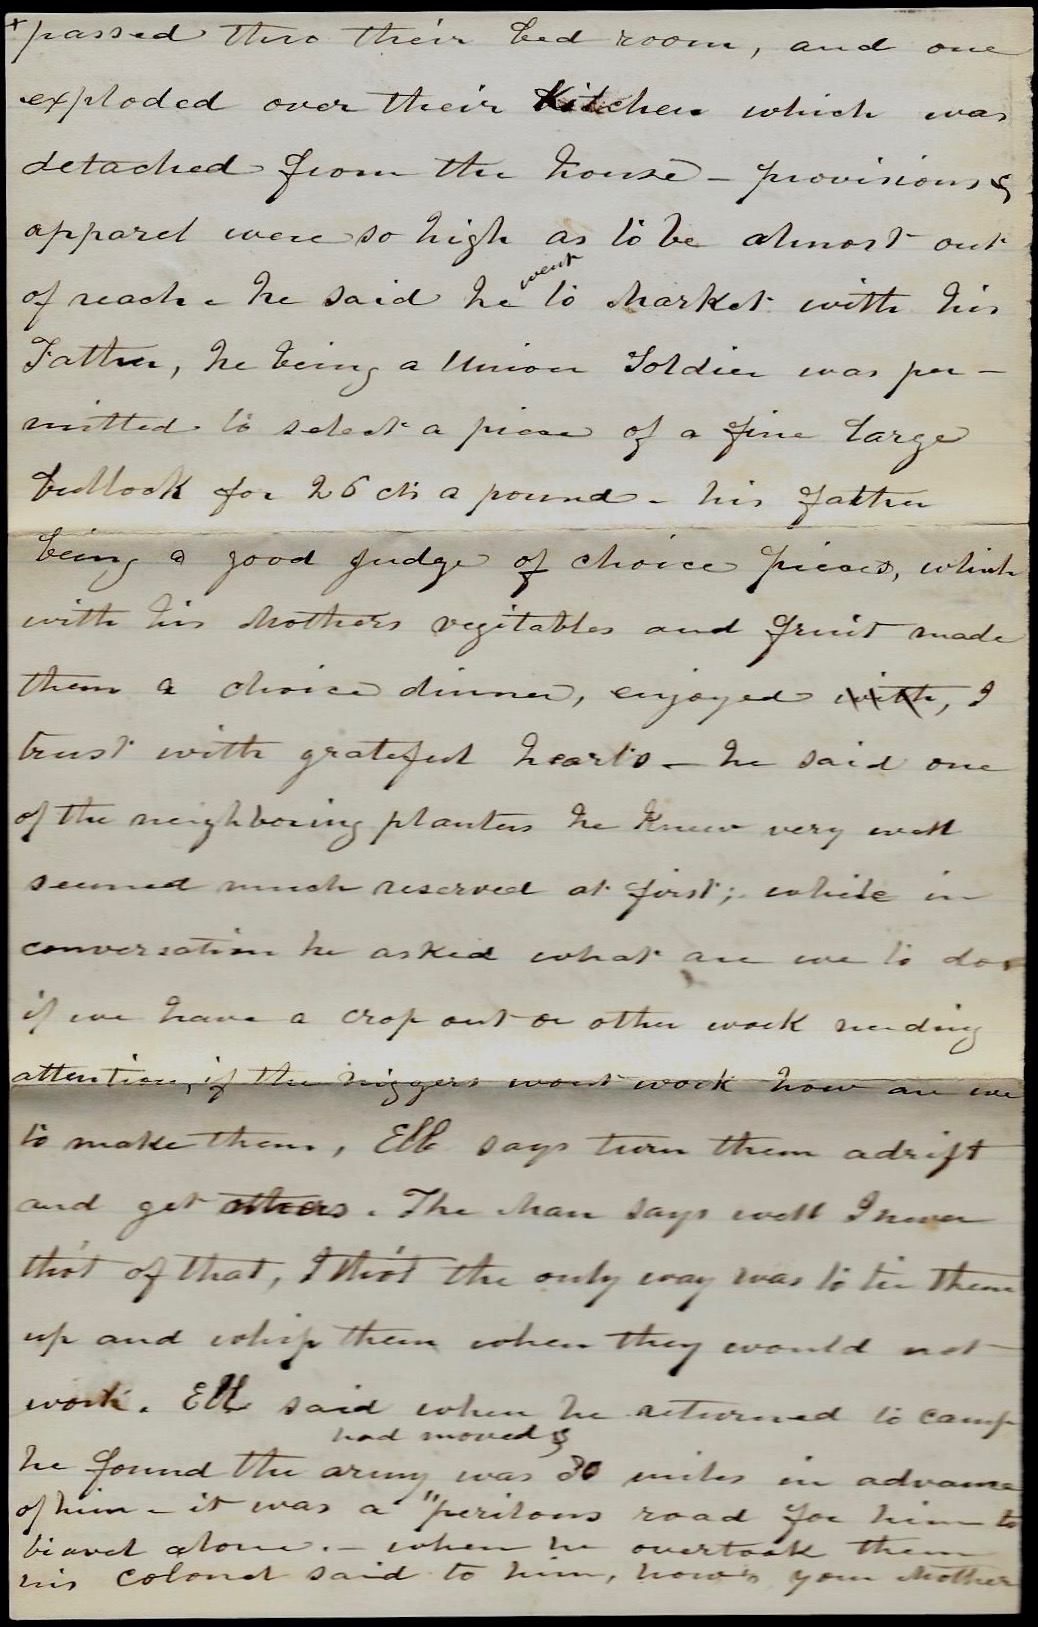 + passed thro their bed room, and one
exploded over their Kitchen which was
detached from the house - provisions &
apparel were so high as to be almost out
of reach - he said he went to Market with his
Father, he being a Union Soldier was per -
mitted to select a piece of a fine large
bullock for 26 cts a pound - his father
being a good judge of choice pieces, which
with his Mothers vegitables and fruit made
them a choice dinner, enjoyed with, I
trust with grateful hearts - he said one
of the neighboring planters he Knew very well
seemed much reserved at first; while in
conversation he asked what are we to do
if we have a crop out or other work needing
attention, if the niggers wont work how are we
to make them, Ell says turn them adrift
and get others. The Man says well I never
tho't of that, I tho't the only way was to tie them
up and whip them when they would not
work. Ell said when he returned to camp
had moved &
he found the army was 30 miles in advance
of him - it was a "perilous road for him to
travel alone. - when he overtook them
his colonel said to him, how's your Mother